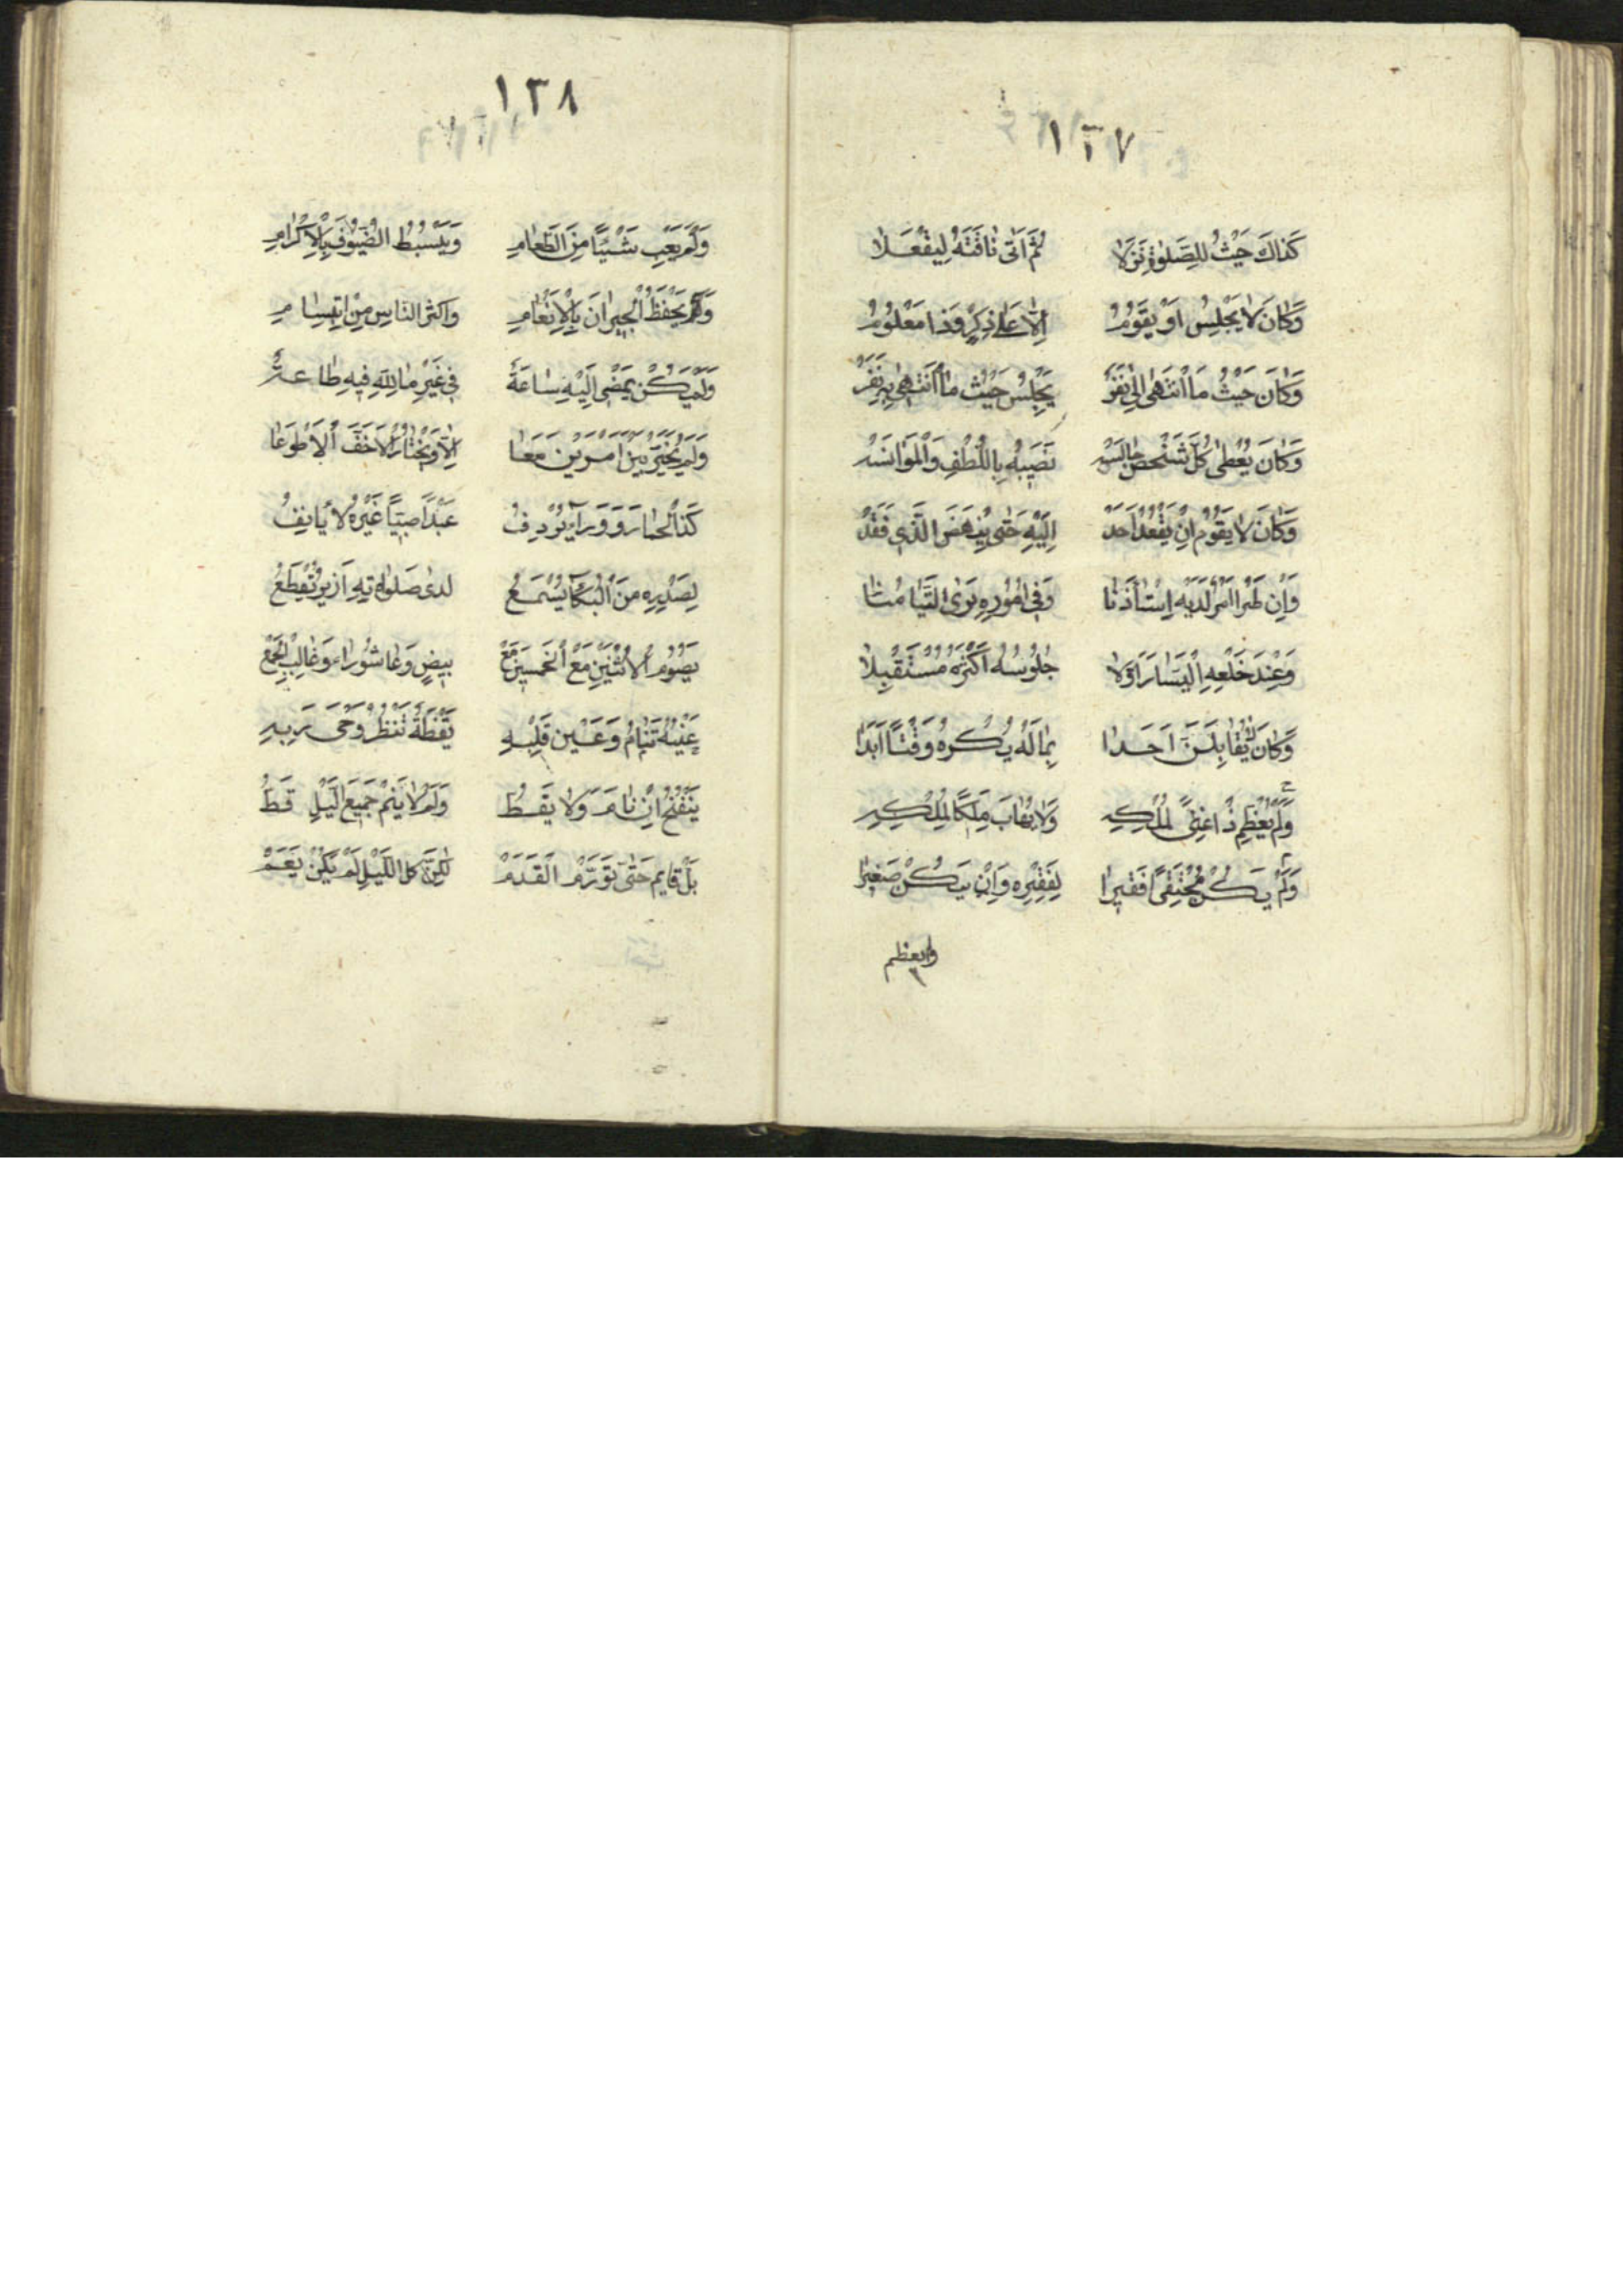 ١٣٧
كَذَاكَ حَيْثُ لِلصَّلٰوةِ نَزَلَا ثُمَّ اَتٰى نَاقَتَهُ لِيَفْعَلَا
وَكَانَ لَا يَجْلِسُ اَوْ يَقُومُ اِلَّا عَلٰى ذِكْرٍ وَذَا مَعْلُومُ
وَكَانَ حَيْثُ مَا انْتَهٰى اِلٰى نَفَرْ يَجْلِسُ حَيْثُ مَا انْتَهٰى بِهِ نَفَرْ
وَكَانَ يُعْطِى كُلَّ شَخْصٍ جَالَسَهْ نَصِيبَهُ بِاللُّطْفِ وَالْمَوَانَسَهْ
وَكَانَ لَا يَقُومُ اِنْ يَقْعُدْ اَحَدْ اِلَيْهِ حَتّٰى يَنْهَضَ الَّذِى قَعَدْ
وَاِنْ طَرَا اَمْرٌ لَدَيْهِ اِسْتَأْذَنَا وَفِى اُمُورِهِ يَرَى التَّيَامُنَا
وَعِنْدَ خَلْعِهِ الْيَسَارَ اَوَّلَا جُلُوسُهُ اَكْثَرُهُ مُسْتَقْبِلَا
وَكَانَ لَا يُقَابِلَنَّ اَحَدَا بِمَا لَهُ يَكْرَهُ وَقْتًا اَبَدَا
وَلَمْ يُعَظِّمْ ذَا غِنًى لِمُلْكِهِ وَلَا يَهَابَ مَلِكًا لِمُلْكِهِ
وَلَمْ يَكُنْ مُحْتَقِرًا فَقِيرَا لِفَقْرِهِ وَاِنْ يَكُنْ صَغِيرَا
ولم يعظم
١٣٨
وَلَمْ يَعِبِ شَيْئًا مِنَ الطَّعَامِ وَيَبْسُطُ الضُّيُوفَ بِالْاِكْرَامِ
وَكَمْ يَحْفَظُ الْجِيرَانَ بِالْاِنْعَامِ وَاَكْثَرَ النَّاسِ مِنِ ابْتِسَامِ
وَلَمْ يَكُنْ يَمْضِى اِلَيْهِ سَاعَةْ فِى غَيْرِ مَا لِلّٰهِ فِيهِ طَاعَةْ
وَلَمْ يُخَيَّرْ بَيْنَ اَمْرَيْنِ مَعَا اِلَّا وَيَخْتَارُ الْاَخَفَّ الْاَطْوَعَا
كَذَا الْحِمَارَ وَوَرَآءَ يُرْدِفُ عَبْدًا صَبِيًّا غَيْرَهُ لَا يَانِفُ
لِصَدْرِهِ مِنَ الْبُكَآ يُسْمَعُ لَدٰى صَلٰوتِهِ اَزِيزٌ تُقْطَعُ
يَصُومُ الْاِثْنَيْنِ مَعَ الْخَمِيسِ مَعْ بِيضٍ وَعَاشُورَاءَ وَغَالِبِ الْجُمَعْ
عَيْنُهُ تَنَامُ وَعَيْنُ قَلْبِهِ يَقْظَةُ تَنْظُرُ وَحْىَ رَبِهِ
يَنْفُخُ اِنْ نَامَ وَلَا يَغِطُّ وَلَمْ لَا يَنَمْ جَمِيعَ الَّيْلِ قَطُّ
بَلْ قَايِمٌ حَتّٰى تَوَرَّمَ الْقَدَمْ لٰكِنَّ كُلَّ اللَّيْلِ لَمْ يَكُنْ يَعَمْ